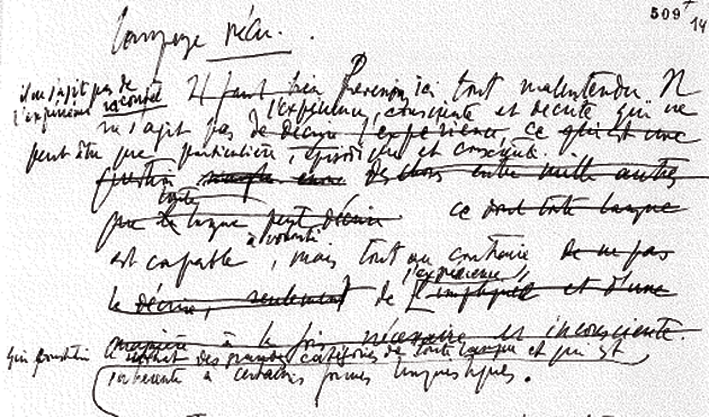 509
14
langage vécu.
il ne s'agit pas de
l'expérience racontée
Il faut bien Prévenir ici tout malentendu Il
l'expérience, consciente et décrite qui ne
ne s'agit pas de décrire l'expérience, ce qui est une
peut être que particulière, épisodique et consciente.
question des choses entre mille autres
toute
que la langue peut décrire ce dont toute langue
à volonté
est capable, mais tout au contraire de ne pas
l'expérience
le décrire, seulement de l'implique et d'une
manière à la fois nécessaire et inconsciente.
qui constitue
des grandes catégories de toute langue et qui est
inhérente à certaines formes linguistiques.